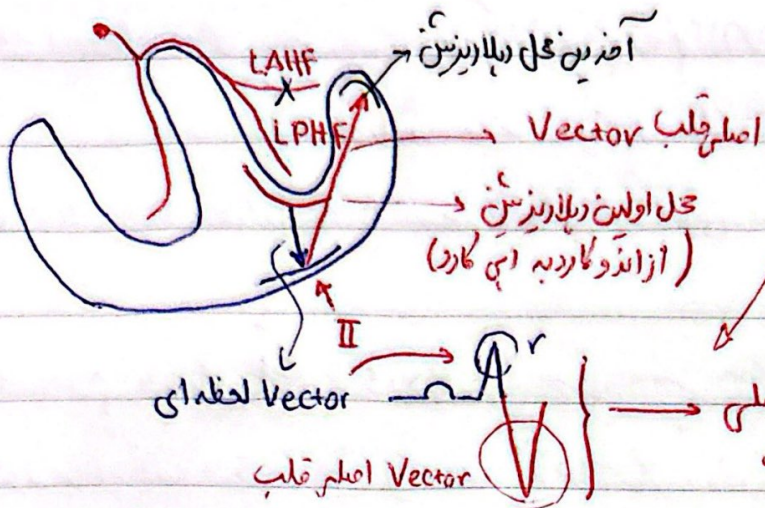 LAHF
آخرین محل دپلاریزیشن
LPHF
Vector اصلی قلب
محل اولین دپلاریزیشن
(از اندوکارد به اپی کارد)
II
r
Vector لحظه ای
Vector اصلی قلب